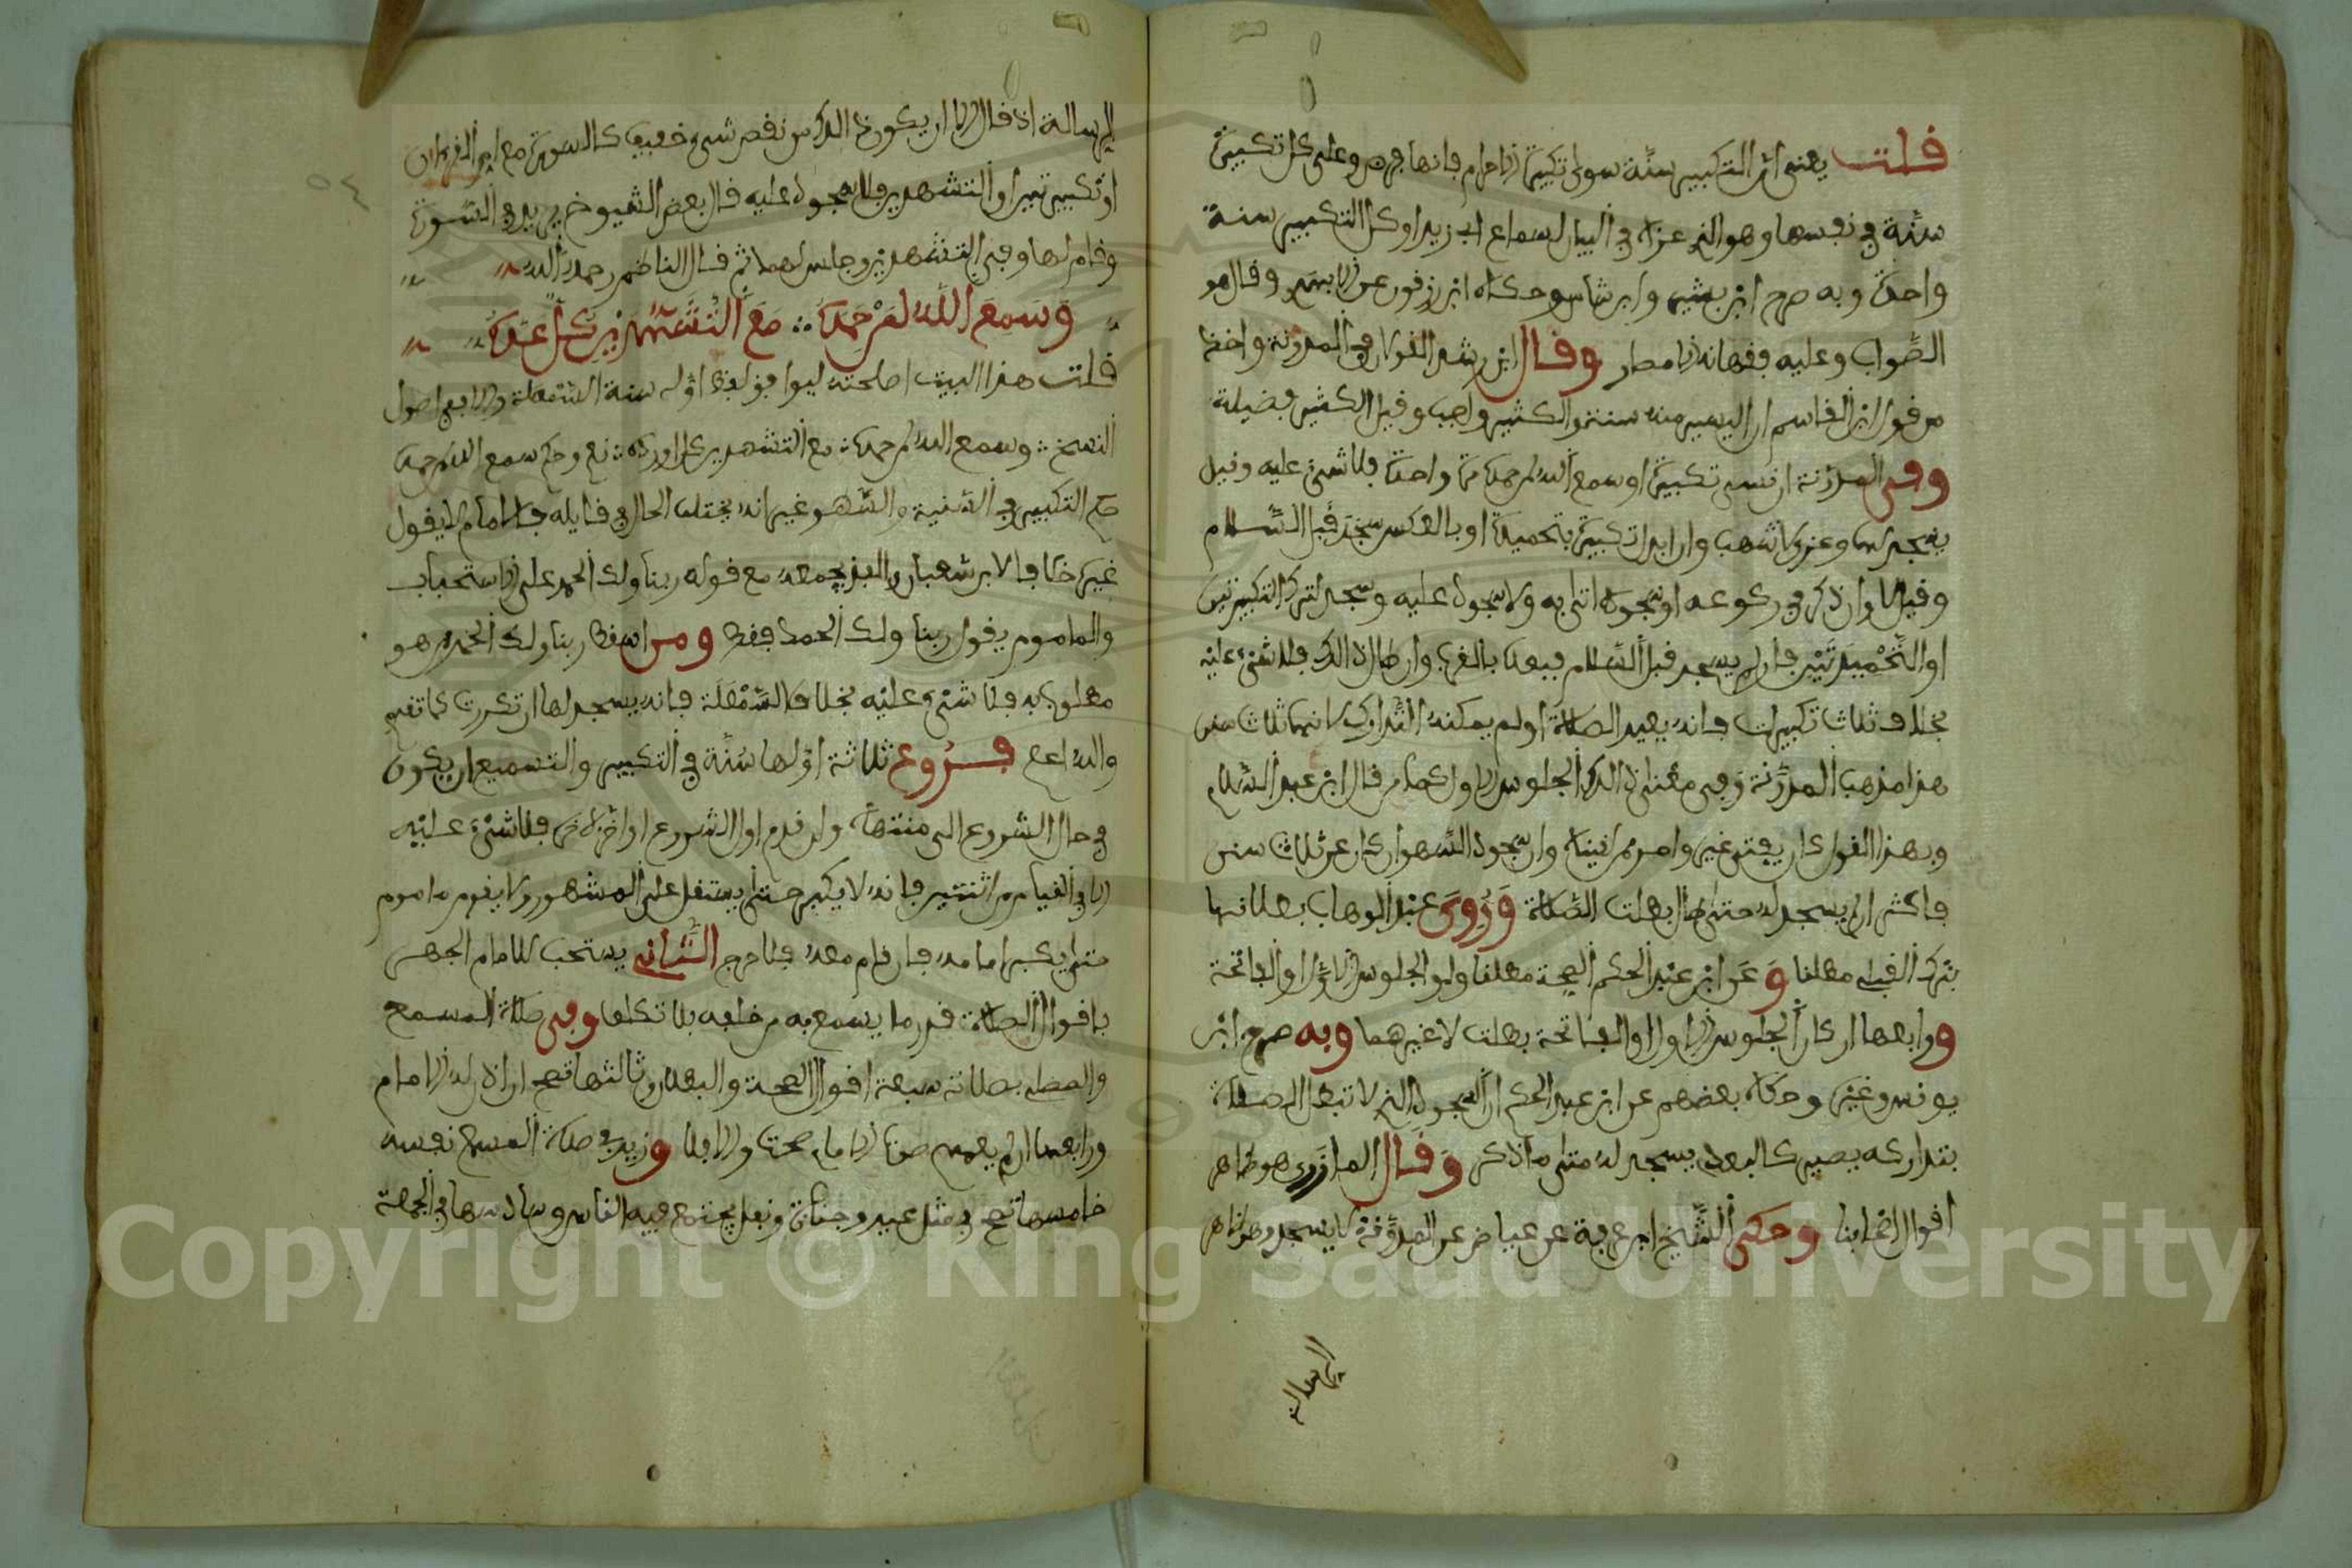 قلت يعنى ان التكبير سنة سوى تكبيرة الاحرام فانها فرض وعلى كل تكبيرة
سنة في نفسها وهو الذى عزاه في البيان لسماع ابى زيد او كل التكبير سنة
واحدة وبه صرح ابن بشير وابن شاس وحكاه ابن زرقون عن الابهرى وقال هو
الصواب وعليه فقهاء الامصار وقال ابن رشد القولان في المدونة واخذ
من قول ابن القاسم ان اليسير منه سنة والكثير واجب وقيل الكثير فضيلة
وفى المدونة ان نسى تكبيرة او سمع الله لمن حمده مرة واحدة فلا شىء عليه وقيل
يسجد لها وعزى لاشهب وان ابدل تكبيرة بتحميدة او بالعكس سجد قبل السلام
وقيل لا وان ذكر في ركوعه او سجوده اتى به ولا سجود عليه وسجد لترك التكبيرتين
او التحميدتين فان لم يسجد قبل السلام فبعده بالقرب وان طال ذلك فلا شىء عليه
بخلاف ثلاث تكبيرات فانه يعيد الصلاة او لم يمكنه التدارك لانها ثلاث سنن
هذا مذهب المدونة وفى معنى ذلك الجلوس الاول كما مر قال ابن عبد السلام
وبهذا القول كان يفتى غير واحد ممن لقيناه وان سجود السهو ان كان عن ثلاث سنن
فاكثر ان لم يسجد له حتى طال بطلت الصلاة وروى عبد الوهاب بطلانها
بترك القبلى مطلقا وعن ابن عبد الحكم الصحة مطلقا ولو الجلوس الاول او الفاتحة
ورابعها ان كان الجلوس الاول او الفاتحة بطلت لا غيرهما وبه صرح ابن
يونس وغيره وحكاه بعضهم عن ابن عبد الحكم ان السجود الذى لا تبطل الصلاة
بتداركه يصير كالبعدى يسجد له متى ما ذكر وقال المازرى هو ظاهر
اقوال اصحابنا وحكى الشيخ ابن عرفة عن عياض عن المدونة لا يسجد وهو ظاهر
الرسالة
الرسالة اذ قال الا ان يكون ذلك من نقص شىء خفيف كالسورة مع ام القرءان
او تكبيرتين او التشهدين فلا سجود عليه قال بعض الشيوخ يريد في السورة
وقام لها وفى التشهدين وجلس لهما ثم قال الناظم رحمه الله
وسمع الله لمن حمده مع التشهدين كل عده
قلت هذا البيت اصلحته ليوافق لفظ اوله سنة السمعلة والا ففى اصول
النسخ وسمع الله لمن حمده مع التشهدين كل اورده نعم وحكم سمع الله لمن حمده
حكم التكبير في السنية والسهو غير انه يختلف الحال في قايله فالامام لا يقول
غيره خلافا لابن شعبان والفذ يجمعه مع قوله ربنا ولك الحمد على الاستحباب
والماموم يقول ربنا ولك الحمد فقط ومن اسقط ربنا ولك الحمد ممن هو
مطلوب به فلا شىء عليه بخلاف السمعلة فانه يسجد لها ان تكررت كما تقدم
والله اعلم فروع ثلاثة اولها سنة في التكبير والتسميع ان يكون
في حال الشروع الى منتهاه وان قدم اول الشروع او اخر لاخره فلا شىء عليه
الا في القيام من اثنتين فانه لا يكبر حتى يستقل على المشهور ولا يقوم ماموم
حتى يكبر امامه فان قام معه فلا حرج الثانى يستحب للامام الجهر
باقوال الصلاة قدر ما يسمع به من خلفه بلا تكلف وفى صلاة المسمع
والمصلى بصلاته سبعة اقوال الصحة والبطلان وثالثها تصح ان اذن له الامام
ورابعها ان لم يعمهم صوت الامام صحت والا فلا وزيد في صلاة المسمع نفسه
خامسها تصح في مثل عيد وجنازة ونفل يجتمع فيه الناس وسادسها في الجمعة